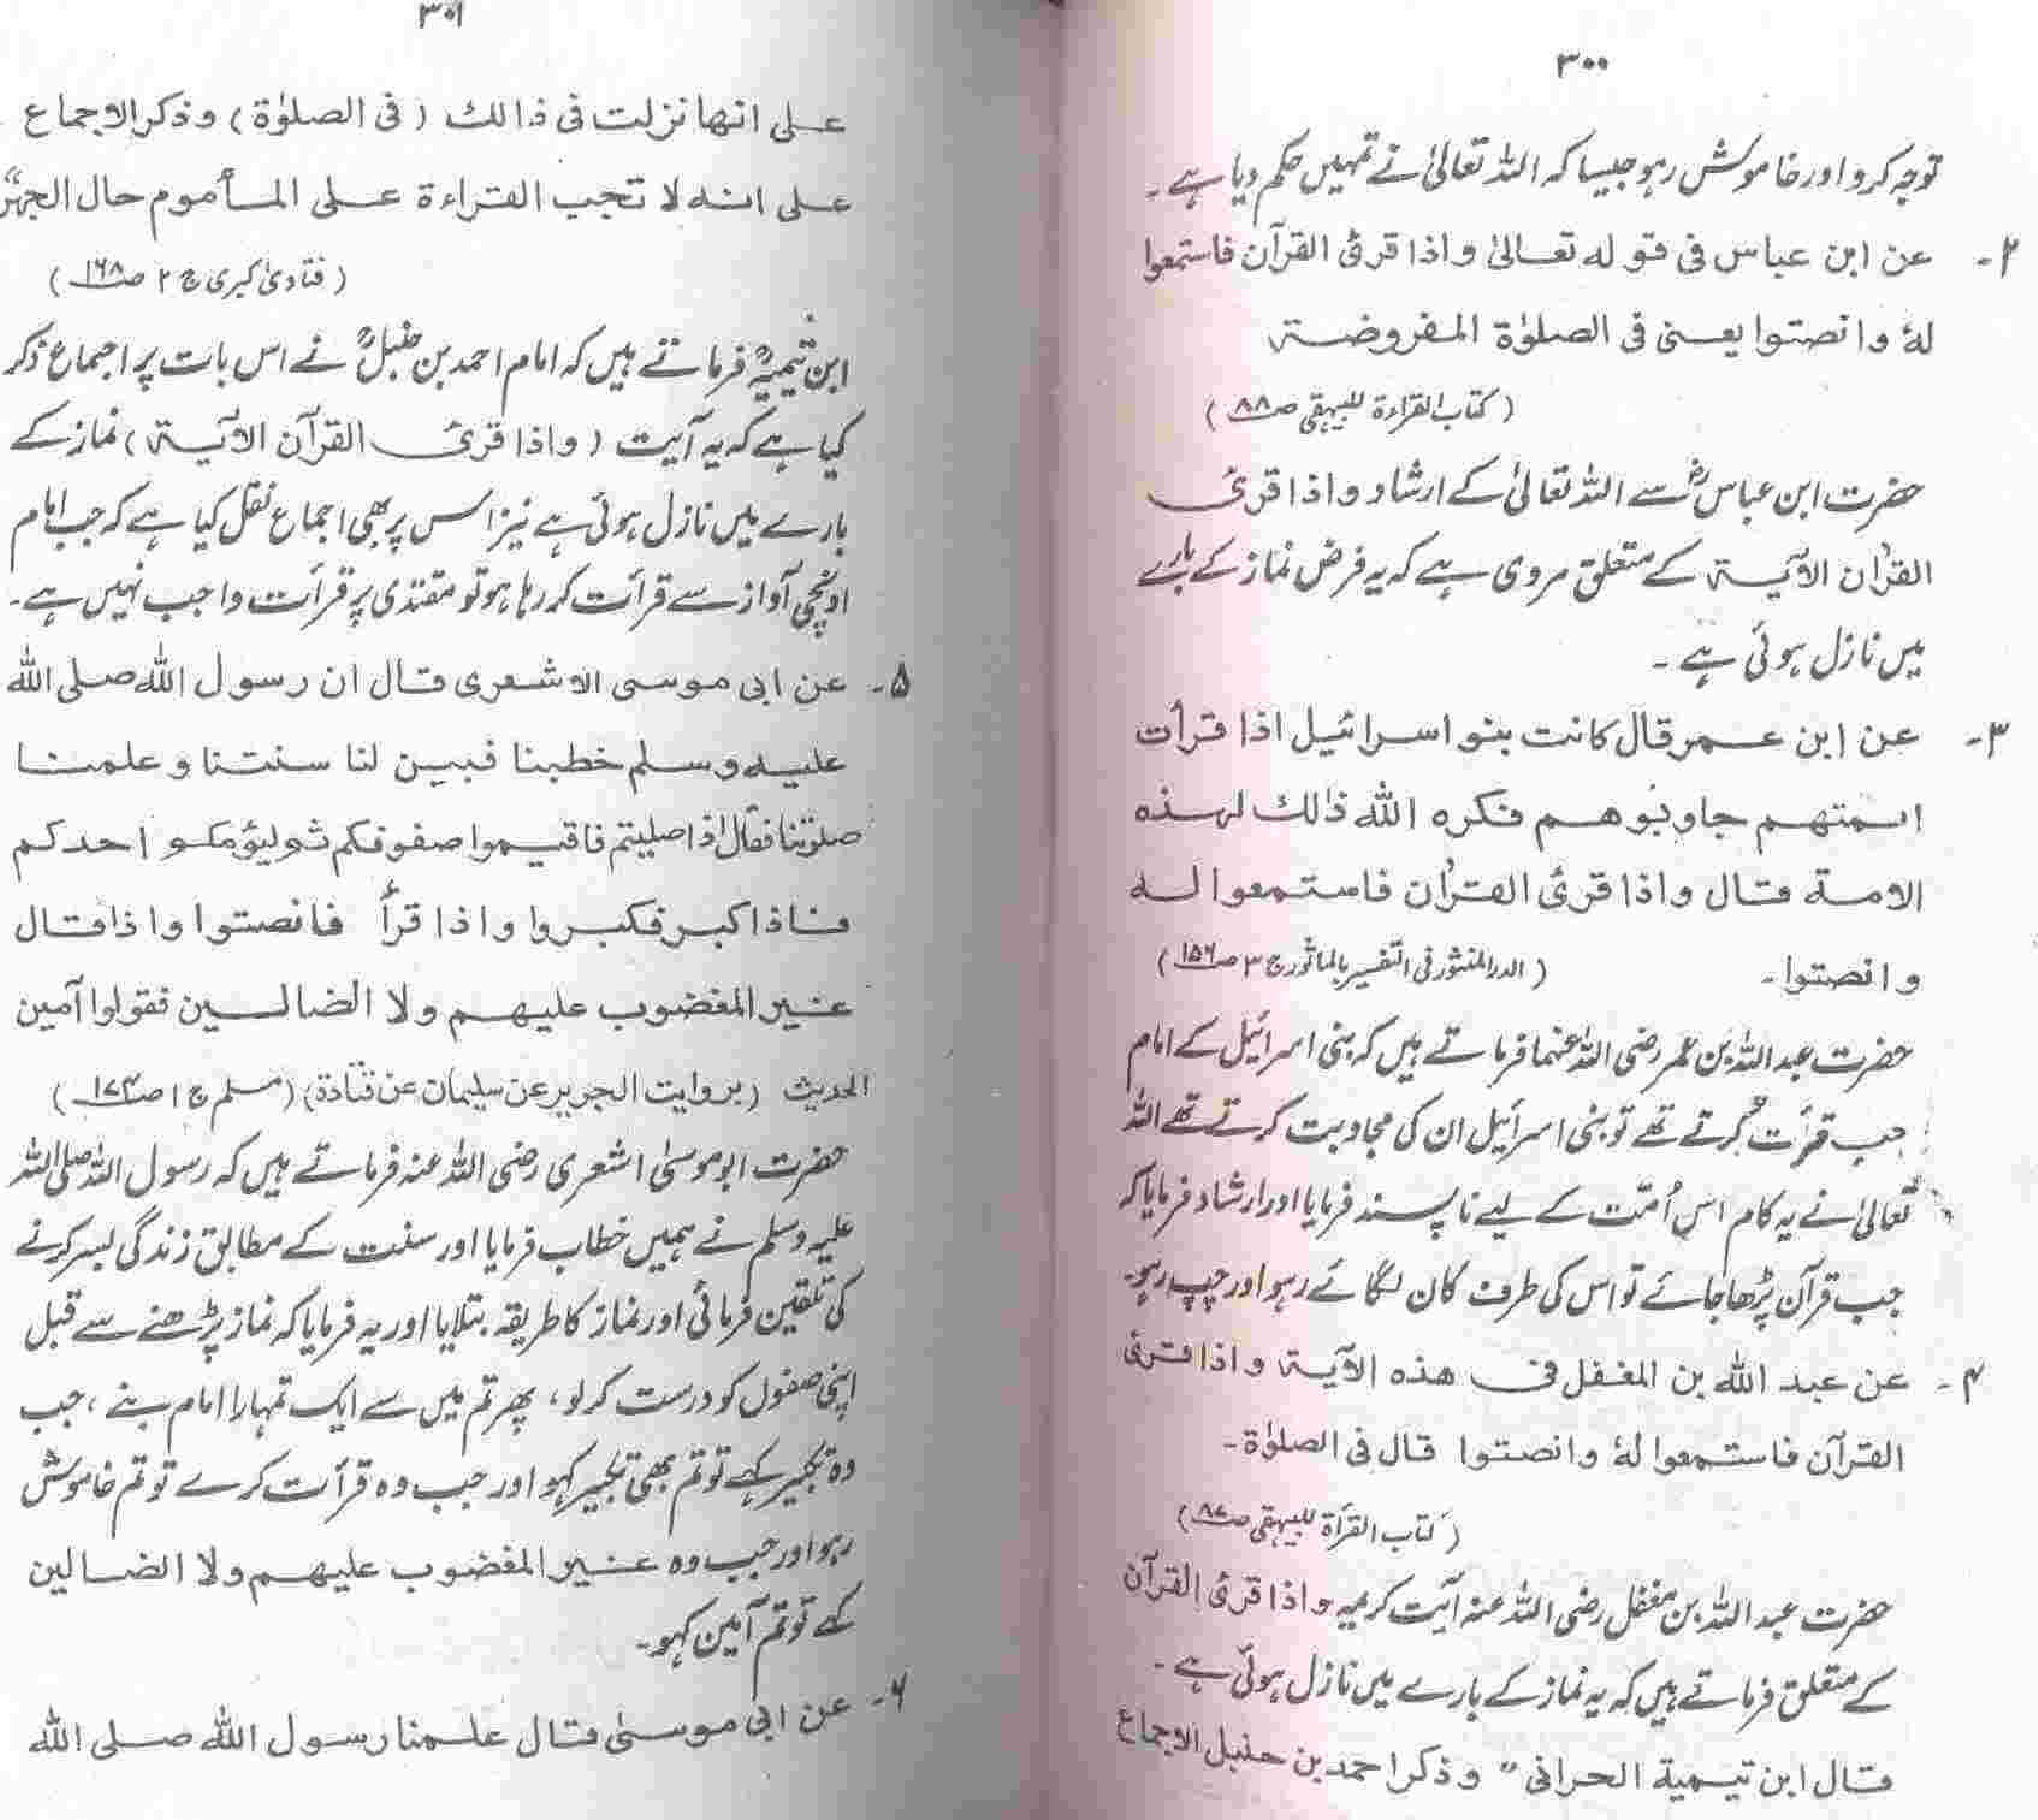 ۳۰۰
توجہ کرو اور خاموش رہو جیسا کہ اللہ تعالیٰ نے تمہیں حکم دیا ہے۔
۲- عن ابن عباس فی قوله تعالیٰ واذا قرئ القرآن فاستمعوا
لهٗ وانصتوا یعنی فی الصلوٰة المفروضة
(کتاب القراءة للبیہقی ص۸۸)
حضرت ابن عباسؓ سے اللہ تعالیٰ کے ارشاد واذا قرئ
القرٰان الآیة کے متعلق مروی ہے کہ یہ فرض نماز کے بارے
میں نازل ہوئی ہے۔
۳- عن ابن عمر قال کانت بنو اسرائیل اذا قرأت
ائمتهم جاوبوهم فکره الله ذالك لهذه
الامة قال واذا قرئ القرٰان فاستمعوا له
وانصتوا۔ (الدر المنثور فی التفسیر بالماثور ج ۳ ص۱۵۶)
حضرت عبداللہ بن عمر رضی اللہ عنہما فرماتے ہیں کہ بنی اسرائیل کے امام
جب قرأت کرتے تھے تو بنی اسرائیل ان کی مجاوبت کرتے تھے اللہ
تعالیٰ نے یہ کام اس اُمّت کے لیے ناپسند فرمایا اور ارشاد فرمایا کہ
جب قرآن پڑھا جائے تو اس کی طرف کان لگائے رہو اور چپ رہو۔
۴- عن عبد الله بن المغفل فی هذه الآیة واذا قرئ
القرآن فاستمعوا لهٗ وانصتوا قال فی الصلوٰة۔
(کتاب القرأة للبیہقی ص۸۷)
حضرت عبداللہ بن مغفل رضی اللہ عنہ آیت کریمہ واذا قرئ القرآن
کے متعلق فرماتے ہیں کہ یہ نماز کے بارے میں نازل ہوئی ہے۔
قال ابن تیمیة الحرانی " وذکر احمد بن حنبل الاجماع
۳۰۱
علی انها نزلت فی ذالك (فی الصلوٰة) وذکر الاجماع
علی انه لا تجب القراءة علی المأموم حال الجهر"
(فتاویٰ کبری ج ۲ ص۱۶۸)
ابن تیمیہؒ فرماتے ہیں کہ امام احمد بن حنبلؒ نے اس بات پر اجماع ذکر
کیا ہے کہ یہ آیت (واذا قرئ القرآن الآیة) نماز کے
بارے میں نازل ہوئی ہے نیز اس پر بھی اجماع نقل کیا ہے کہ جب امام
اونچی آواز سے قرأت کر رہا ہو تو مقتدی پر قرأت واجب نہیں ہے۔
۵- عن ابی موسی الاشعری قال ان رسول الله صلی الله
علیه وسلم خطبنا فبین لنا سنتنا وعلمنا
صلوٰتنا فقال اذا صلیتم فاقیموا صفوفکم ثم لیؤمکم احدکم
فاذا کبر فکبروا واذا قرأ فانصتوا واذا قال
غیر المغضوب علیهم ولا الضالین فقولوا آمین
الحدیث (بروایت الجریر عن سلیمان عن قتادة) (مسلم ج ۱ ص۱۷۴)
حضرت ابو موسیٰ اشعری رضی اللہ عنہ فرماتے ہیں کہ رسول اللہ صلی اللہ
علیہ وسلم نے ہمیں خطاب فرمایا اور سنت کے مطابق زندگی بسر کرنے
کی تلقین فرمائی اور نماز کا طریقہ بتلایا اور یہ فرمایا کہ نماز پڑھنے سے قبل
اپنی صفوں کو درست کر لو، پھر تم میں سے ایک تمہارا امام بنے، جب
وہ تکبیر کہے تو تم بھی تکبیر کہو اور جب وہ قرأت کرے تو تم خاموش
رہو اور جب وہ غیر المغضوب علیهم ولا الضالین
کہے تو تم آمین کہو۔
۶- عن ابی موسیٰ قال علمنا رسول الله صلی الله